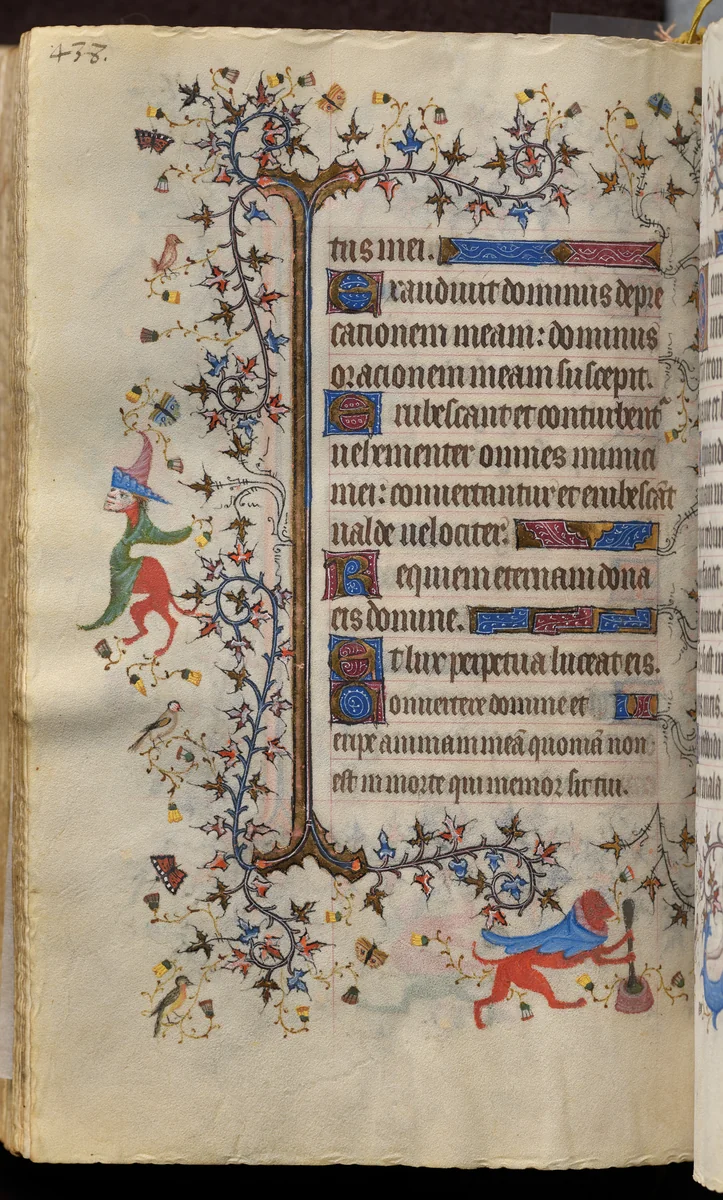 438.
tus mei.
Exaudiuit dominus depre
cationem meam: dominus
oracionem meam suscepit.
Erubescant et conturbent
uehementer omnes inimici
mei: conuertantur et erubescāt
ualde uelociter.
Requiem eternam dona
eis domine.
Et lux perpetua luceat eis.
Conuertere domine et
eripe animam meā quoniā non
est in morte qui memor sit tui.